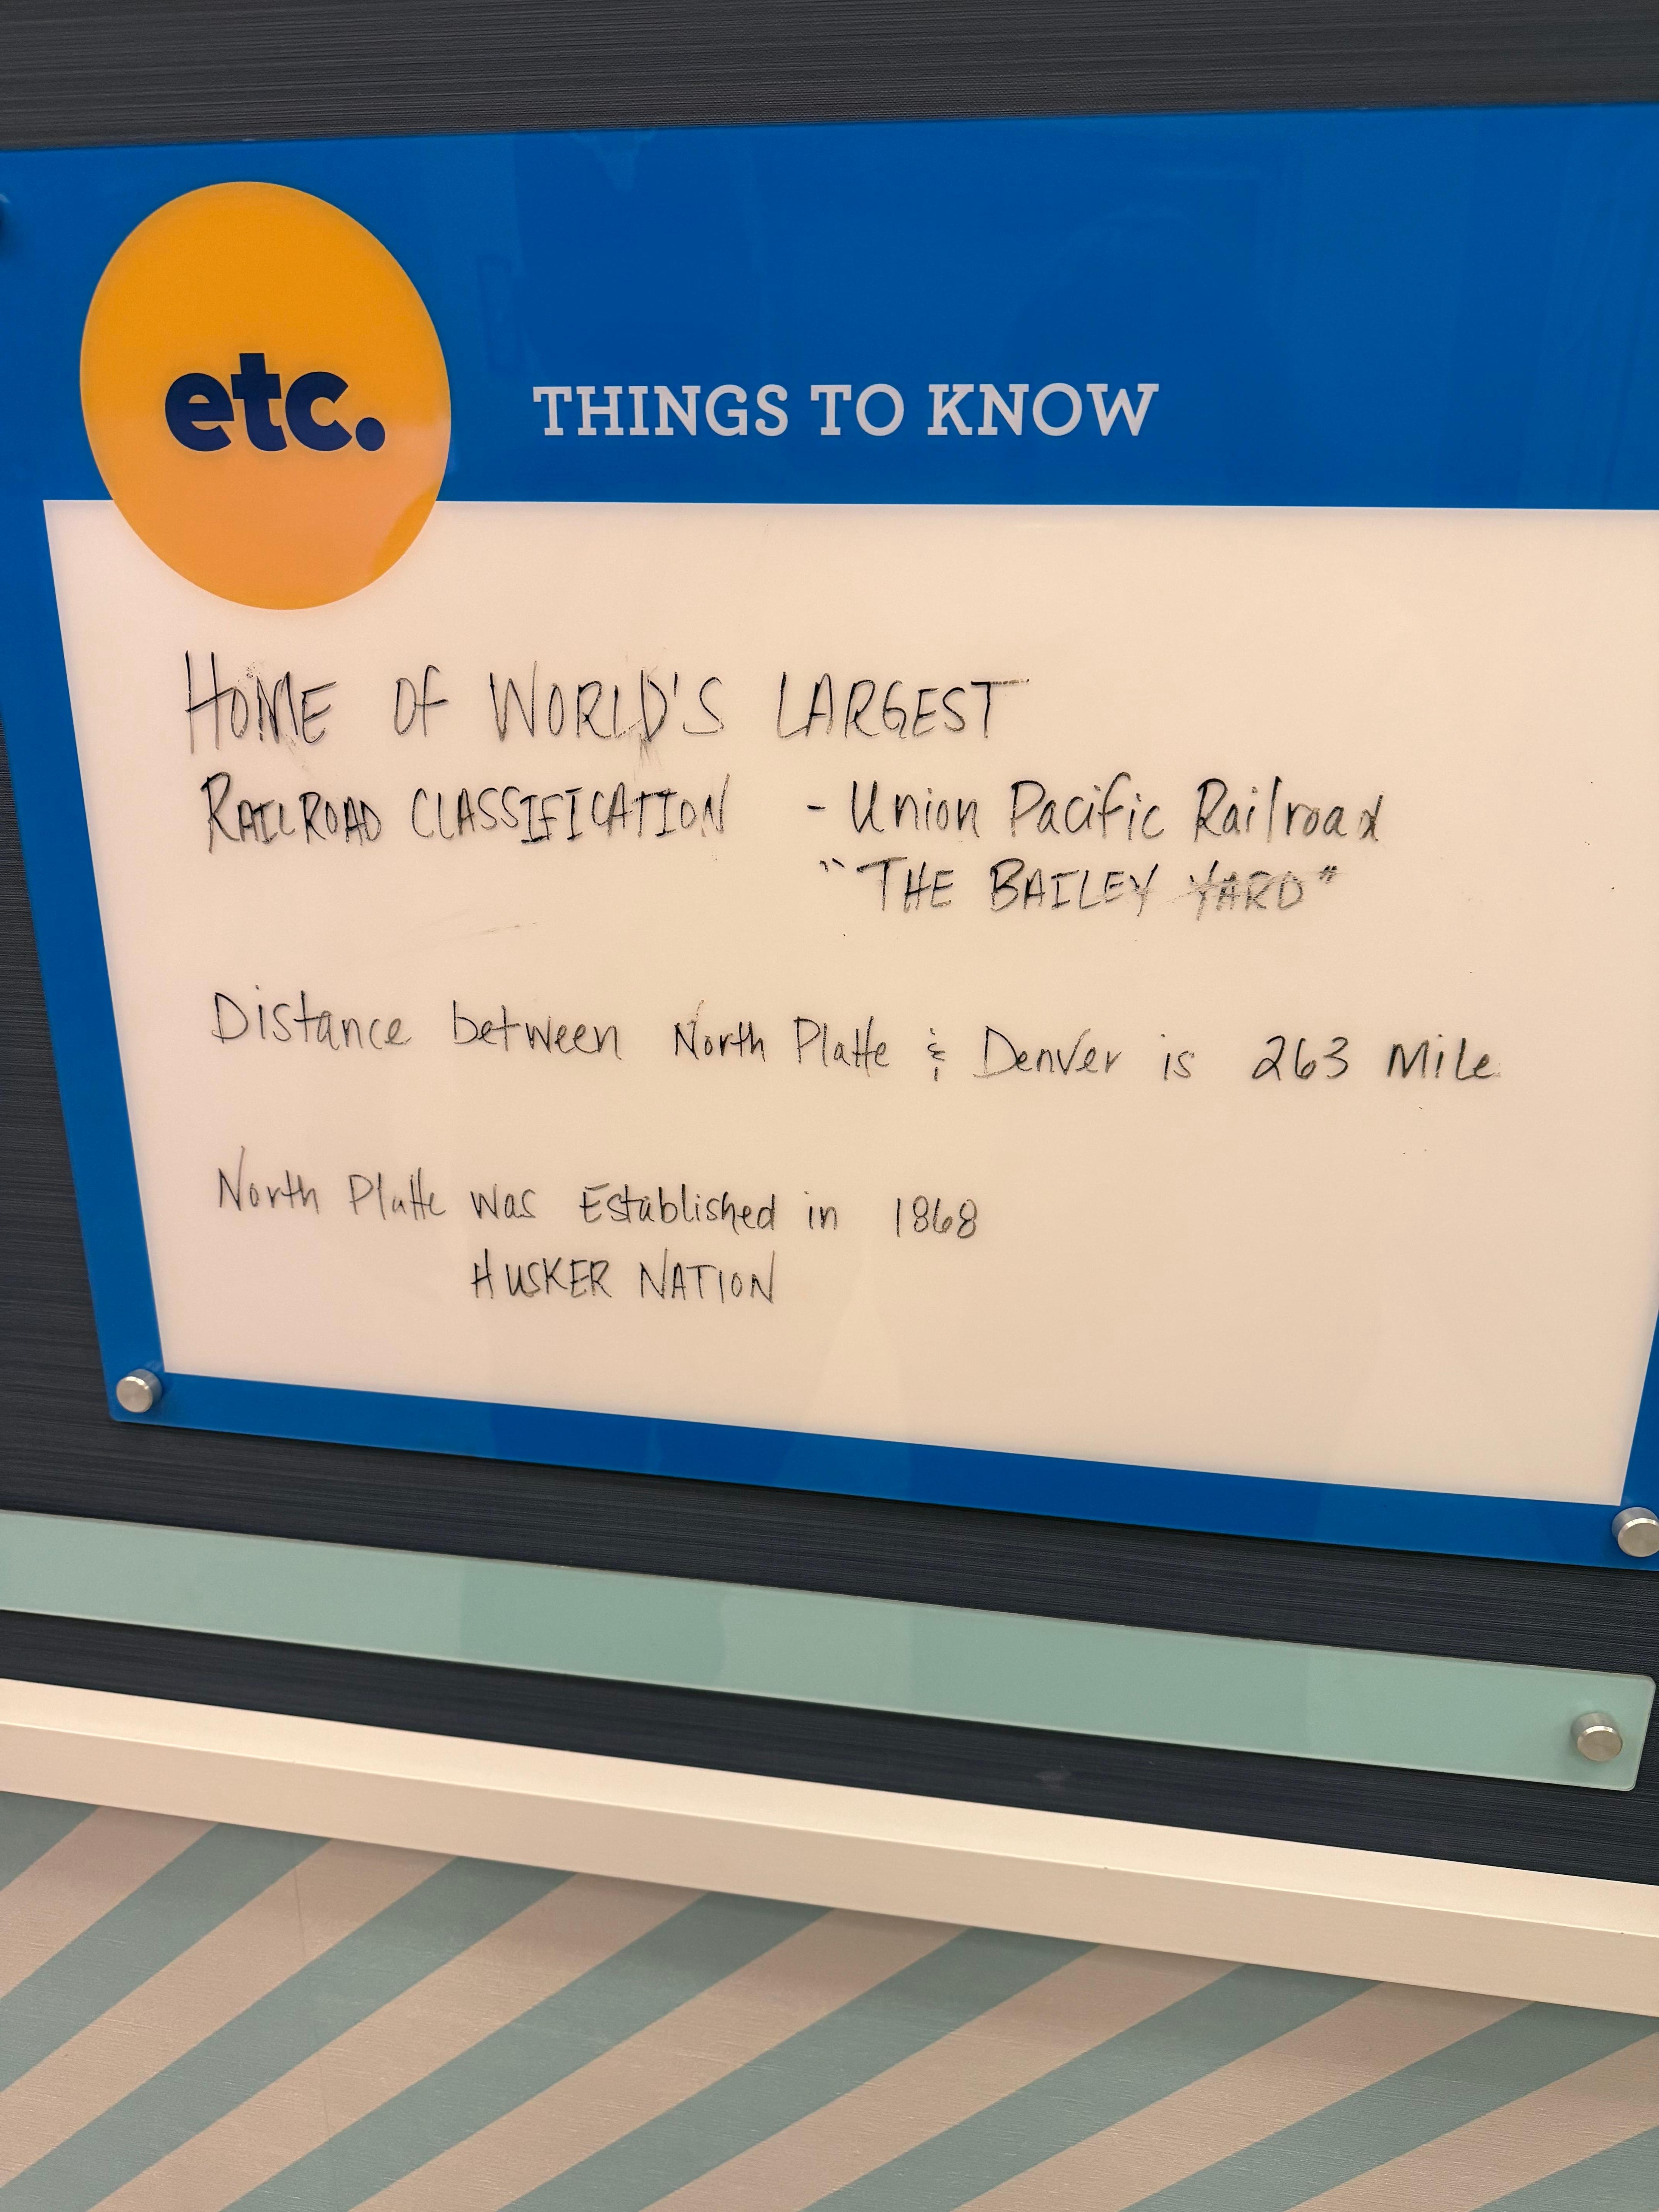 etc.
THINGS TO KNOW
HOME OF WORLD'S LARGEST
RAILROAD CLASSIFICATION - Union Pacific Railroad
"THE BAILEY YARD"
Distance between North Platte & Denver is 263 Mile
North Platte was Established in 1868
HUSKER NATION